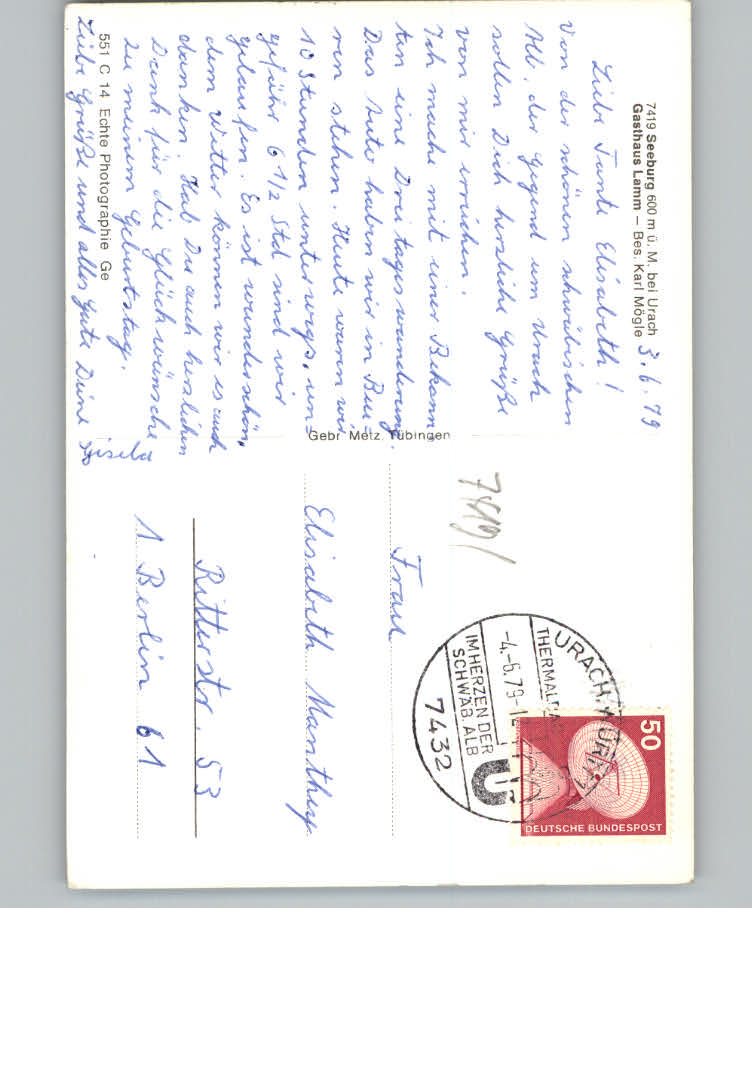 7419 Seeburg 600 m ü. M. bei Urach
Gasthaus Lamm – Bes. Karl Mögle
3.6.79
Liebe Tante Elisabeth!
Von der schönen schwäbischen
Alb, der Gegend um Urach
sollen Dich herzliche Grüße
von mir erreichen.
Ich mache mit einer Bekann-
ten eine Dreitageswanderung.
Das Auto haben wir in Beu-
ren stehen. Heute waren wir
10 Stunden unterwegs, un-
gefähr 6 1/2 Std sind wir
gelaufen. Es ist wunderschön,
dem Wetter können wir es auch
danken. Hab Du auch herzlichen
Dank für die Glückwünsche
zu meinem Geburtstag.
Liebe Grüße und alles Gute Deine
Gisela
551 C 14 Echte Photographie Ge
Gebr Metz Tübingen
7419/
Frau
Elisabeth Manthey
Ritterstr. 53
1 Berlin 61
URACH/WÜRTT
THERMALBAD
-4.-6.79-12
IM HERZEN DER
SCHWÄB. ALB
U
7432
50
DEUTSCHE BUNDESPOST